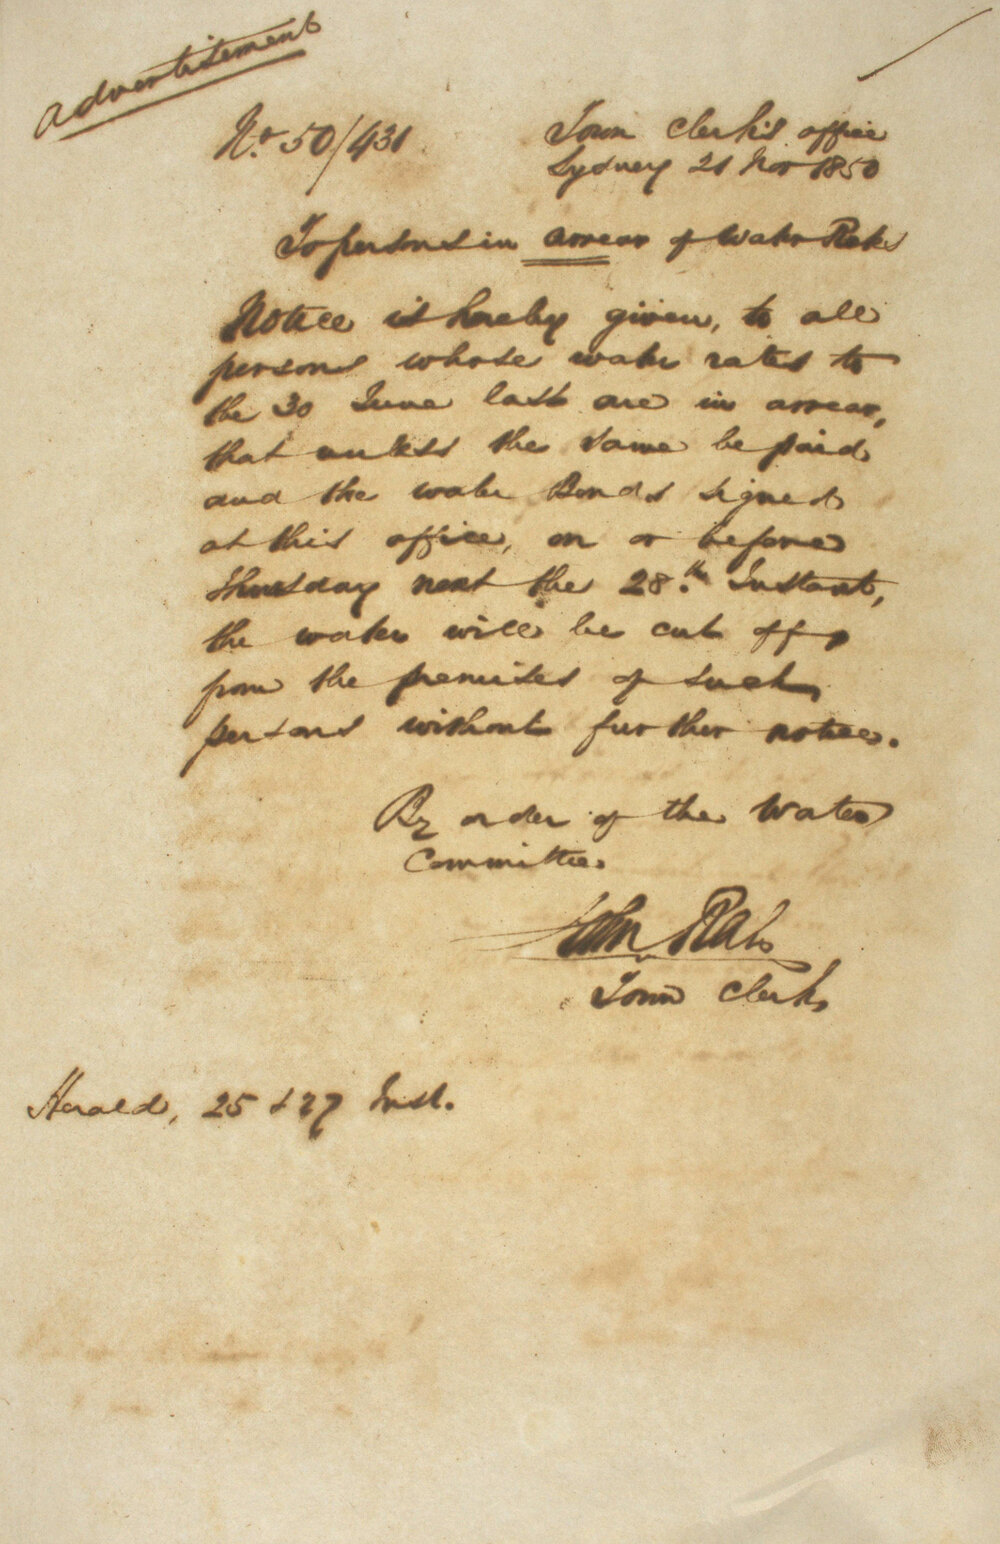 Advertisement
No. 50/431
Town Clerk's office
Sydney 21 Nov 1850
To persons in arrear of Water Rates
Notice is hereby given, to all
persons whose water rates to
the 30 June last are in arrear,
that unless the same be paid
and the water Bonds signed
at this office, on or before
Thursday next the 28.th Instant,
the water will be cut off
from the premises of such
persons without further notice.
By order of the Water
Committee.
John Rae
Town Clerk
Herald, 25 & 27 Inst.